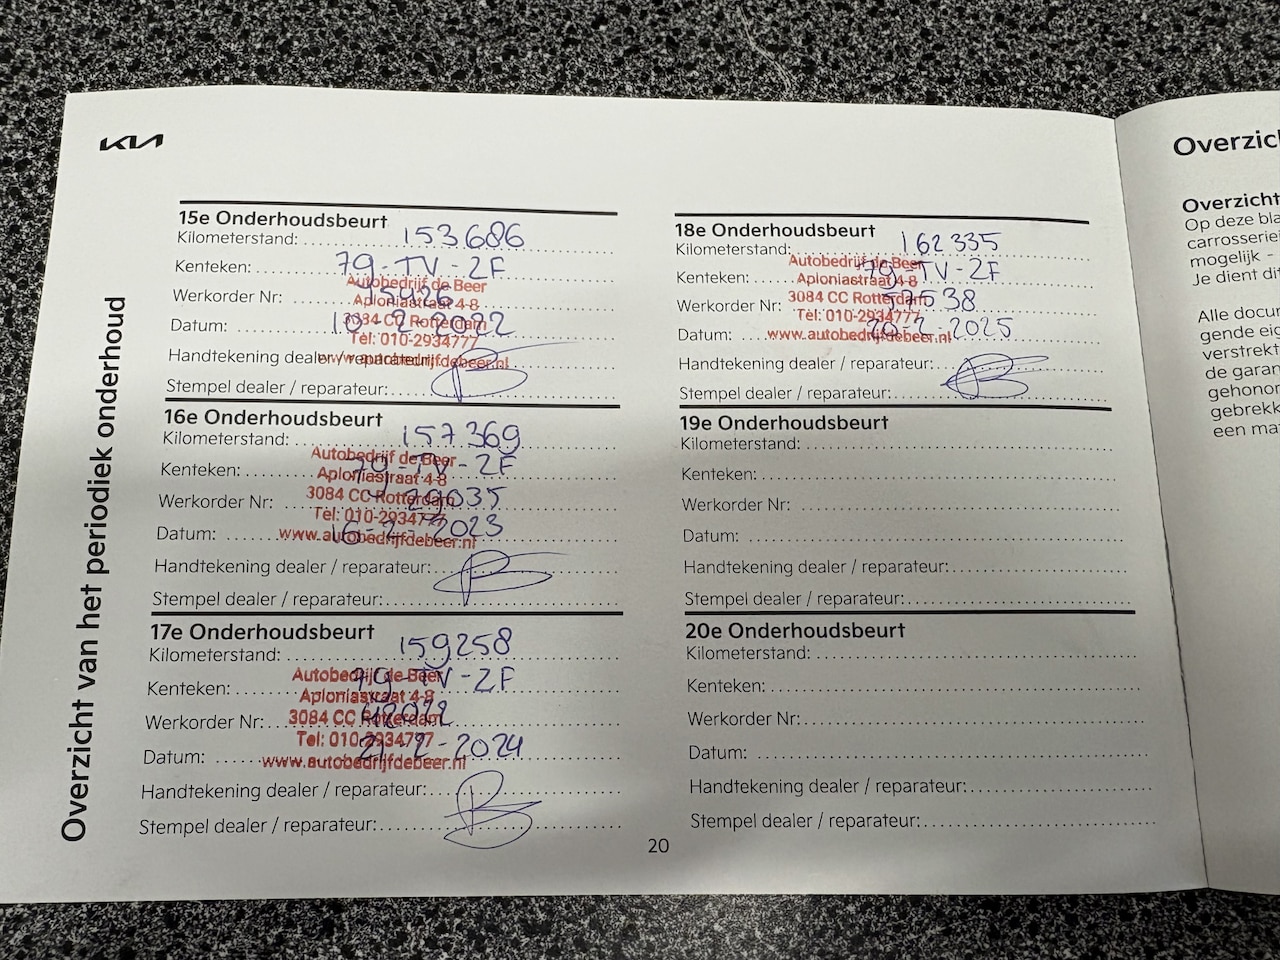 KIA
Overzicht van het periodiek onderhoud
15e Onderhoudsbeurt
Kilometerstand: 153686
Kenteken: 79-TV-2F
Werkorder Nr:
Datum: 10-2-2022
Handtekening dealer / reparateur:
Stempel dealer / reparateur:
Autobedrijf de Beer
Aploniastraat 4-8
3084 CC Rotterdam
Tel: 010-2934777
www.autobedrijfdebeer.nl
16e Onderhoudsbeurt
Kilometerstand: 157369
Kenteken: 79-TV-2F
Werkorder Nr: 29035
Datum: 16-2-2023
Handtekening dealer / reparateur:
Stempel dealer / reparateur:
Autobedrijf de Beer
Aploniastraat 4-8
3084 CC Rotterdam
Tel: 010-2934777
www.autobedrijfdebeer.nl
17e Onderhoudsbeurt
Kilometerstand: 159258
Kenteken: 79-TV-2F
Werkorder Nr:
Datum: 21-2-2024
Handtekening dealer / reparateur:
Stempel dealer / reparateur:
Autobedrijf de Beer
Aploniastraat 4-8
3084 CC Rotterdam
Tel: 010-2934777
www.autobedrijfdebeer.nl
18e Onderhoudsbeurt
Kilometerstand: 162335
Kenteken: 79-TV-2F
Werkorder Nr:
Datum: 20-2-2025
Handtekening dealer / reparateur:
Stempel dealer / reparateur:
Autobedrijf de Beer
Aploniastraat 4-8
3084 CC Rotterdam
Tel: 010-2934777
www.autobedrijfdebeer.nl
19e Onderhoudsbeurt
Kilometerstand:
Kenteken:
Werkorder Nr:
Datum:
Handtekening dealer / reparateur:
Stempel dealer / reparateur:
20e Onderhoudsbeurt
Kilometerstand:
Kenteken:
Werkorder Nr:
Datum:
Handtekening dealer / reparateur:
Stempel dealer / reparateur:
20
Overzic
Overzicht
Op deze bla
carrosserie
mogelijk -
Je dient dit
Alle docu
gende eig
verstrekt
de garan
gehonor
gebrekk
een ma